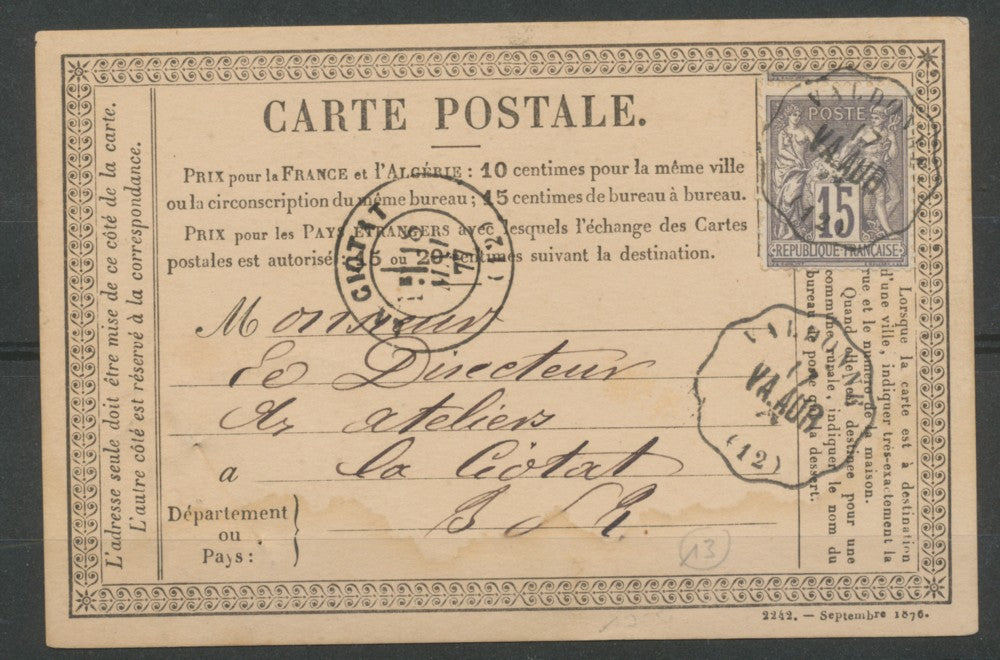 CARTE POSTALE.
PRIX pour la FRANCE et l'ALGÉRIE : 10 centimes pour la même ville
ou la circonscription du même bureau ; 15 centimes de bureau à bureau.
PRIX pour les PAYS ÉTRANGERS avec lesquels l'échange des Cartes
postales est autorisé 15 ou 20 centimes suivant la destination.
L'adresse seule doit être mise de ce côté de la carte.
L'autre côté est réservé à la correspondance.
POSTE
15
REPUBLIQUE FRANÇAISE
VA.AUR
(12)
LA CIOTAT
77
(12)
Monsieur
Le Directeur
des ateliers
a la Ciotat
B d R.
Département
ou
Pays :
VA.AUR
(12)
Lorsque la carte est à destination
d'une ville, indiquer très-exactement la
rue et le numéro de la maison.
Quand elle est destinée pour une
commune rurale, indiquer le nom du
bureau de poste qui la dessert.
13
2242. — Septembre 1876.